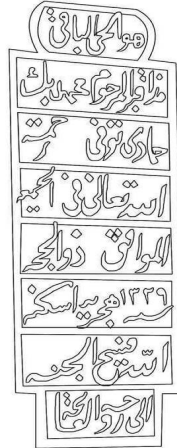 هو الحي الباقي
هذا قبر المرحوم محمد بك
جاوي توفى رحمة
الله تعالى في الحجية
الموافق ذو الحجه
سنه ١٢٢٩ هجريه اسكنه
الله فسيح الجنه
الى روحه الفاتحة